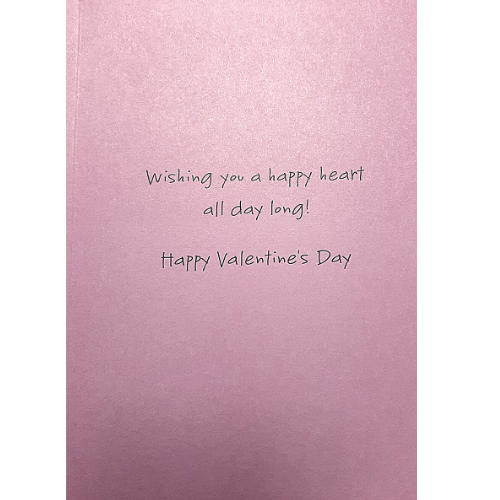 Wishing you a happy heart
all day long!
Happy Valentine's Day